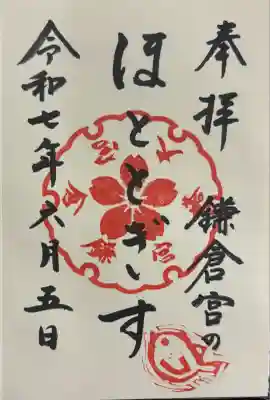 奉拝 鎌倉宮の
ほととぎす
令和七年六月五日